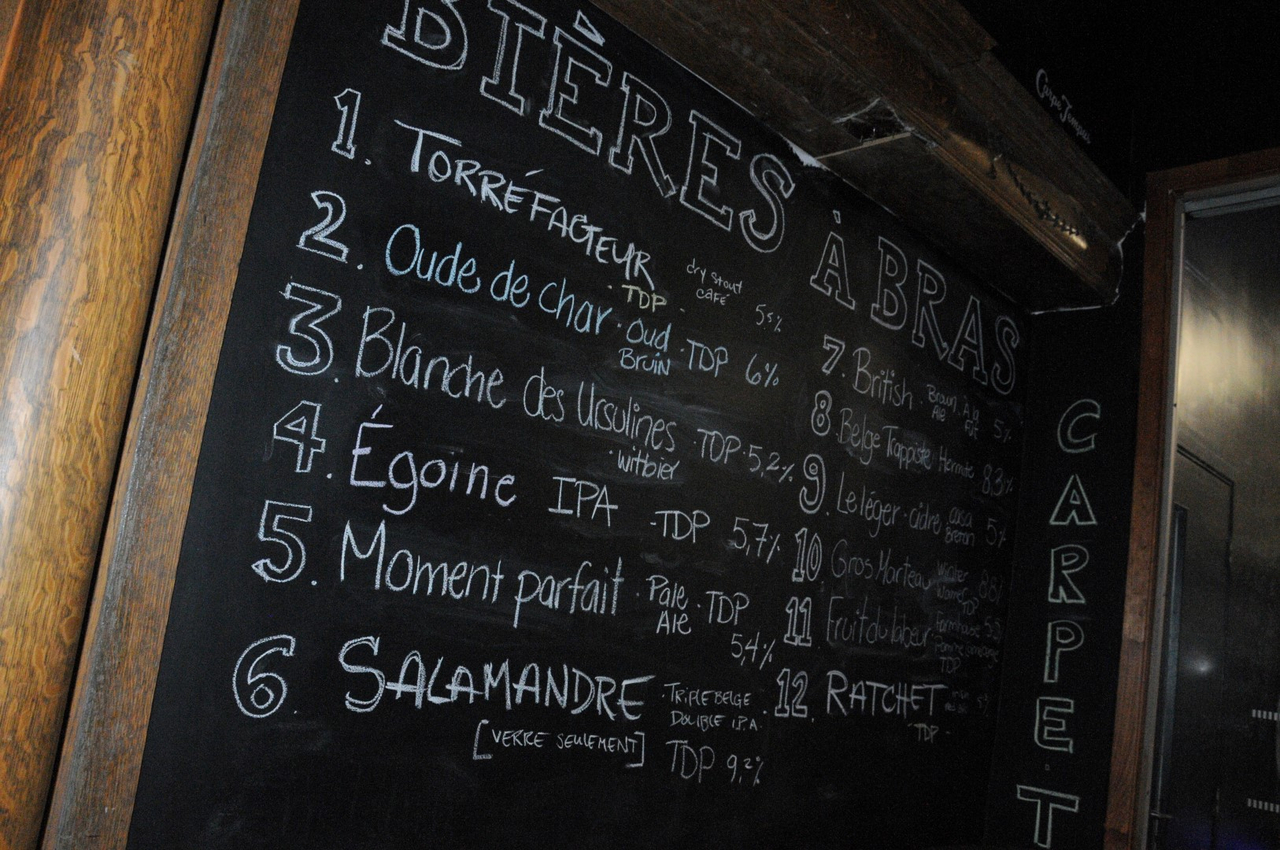 BIÈRES À BRAS
1. TORRÉFACTEUR
· TDP · dry stout café 5,5%
2. Oude de char · Oud Bruin · TDP 6%
3. Blanche des Ursulines · TDP · 5,2%
· witbier
4. Égoine IPA - TDP 5,7%
5. Moment parfait · Pale Ale · TDP
5,4%
6. SALAMANDRE · TRIPLE BELGE DOUBLE I.P.A.
[VERRE SEULEMENT] TDP 9,2%
7. British · Brown Ale À la Fût 5%
8. Belge Trappiste · Hermite 8,3%
9. Le léger · cidre 5%
10. Gros Marteau TDP
11. Fruit du labeur · Farmhouse
TDP
12. RATCHET
· TDP ·
CARPE·T